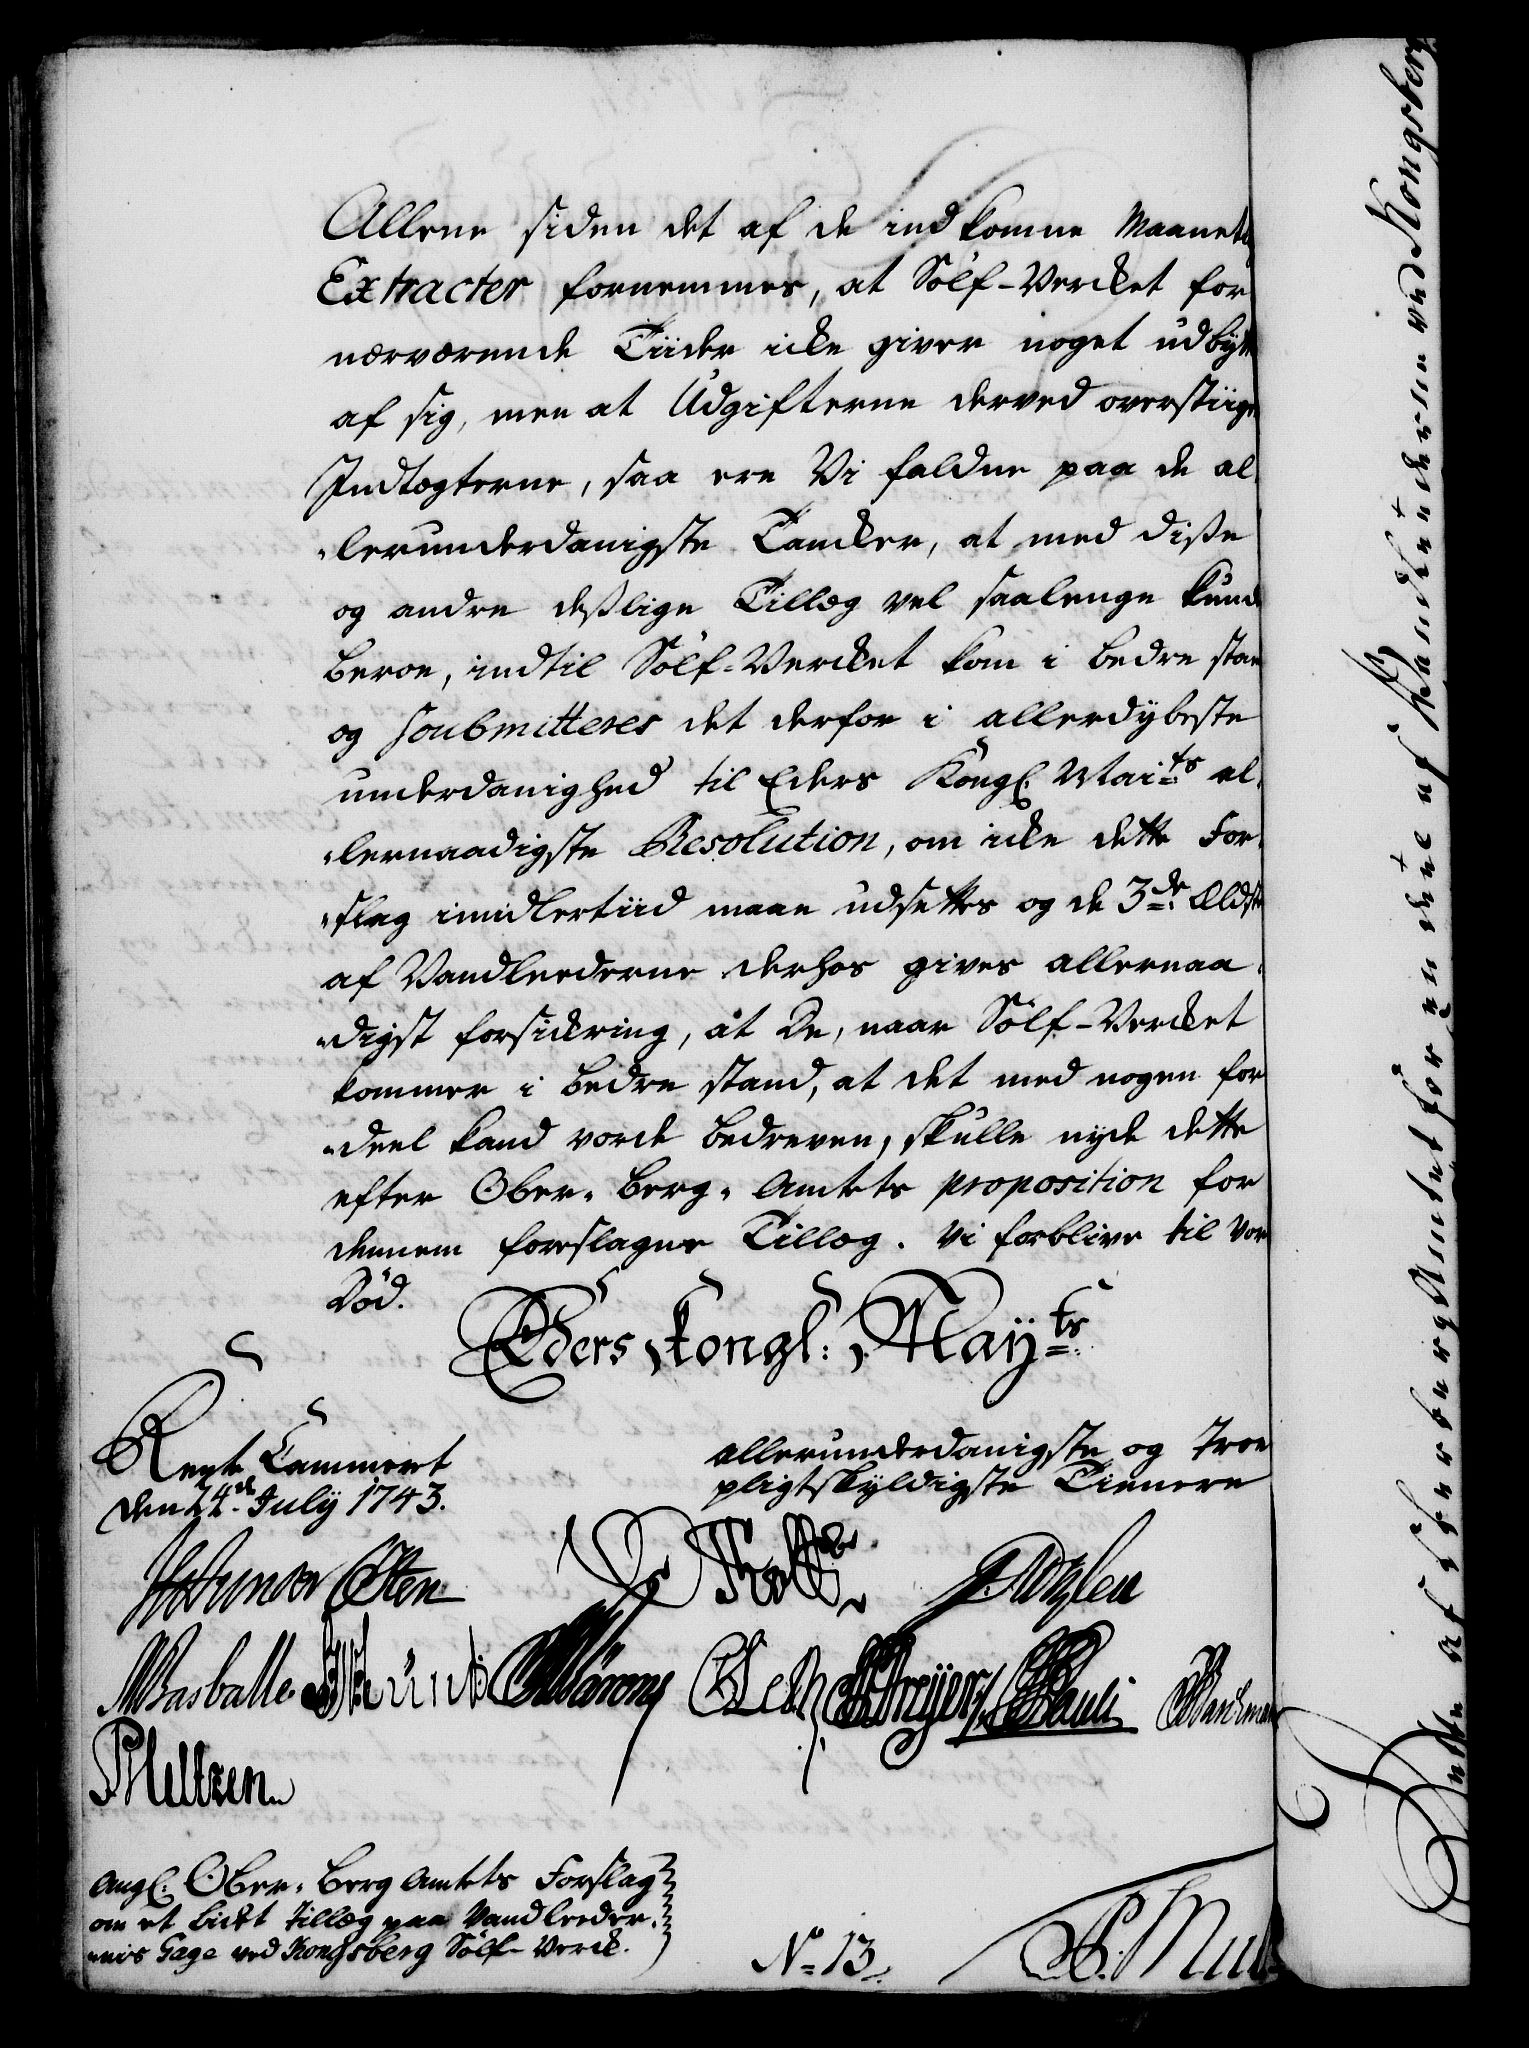 Allene siden det af de indkomne Maanets
Extracter fornemmes, at Sölf-Verket for
nærværende Tiider icke giver noget udbytte
af sig, men at Udgifterne derved overstiiger
Indtægterne, saa ere Vi faldne paa de al-
lerunderdanigste Tancker, at med diße
og andre deßlige Tillæg vel saalenge kunde
beroe, indtil Sölf-Vercket kom i bedre stand
og soubmitteres det derfor i allerdybeste
underdanighed til Eders Kongl. Mai:ts al-
lernaadigste Resolution, om icke dette For-
slag imidlertiid maae udsettes og de 3de Ældste
af Vandleederne derhos gives allernaa-
digst forsickring, at De, naar Sölf-Vercket
kommer i bedre stand, at det med nogen for
deel kand vorde bedreven, skulle nyde dette
efter Ober-Berg-Amtets proposition for
dennem foreslagne Tillæg. Vi forblive til vor
Död.
Eders Kongl: May:ts
Rente Cammeret
den 24de July 1743.
allerunderdanigste og troe
pligtskyldigste Tienere
Osten Holst
Basballe
Pauli
PMeltzen
Angl. Ober-Berg Amtets Forslag
om et lidet tillæg paa Vandleeder-
nis Gage ved Kongsberg Sölf-Verck.
No 13.
Dette af Ober berg Amtet for en deel af Vandleederne ved Kongsberg